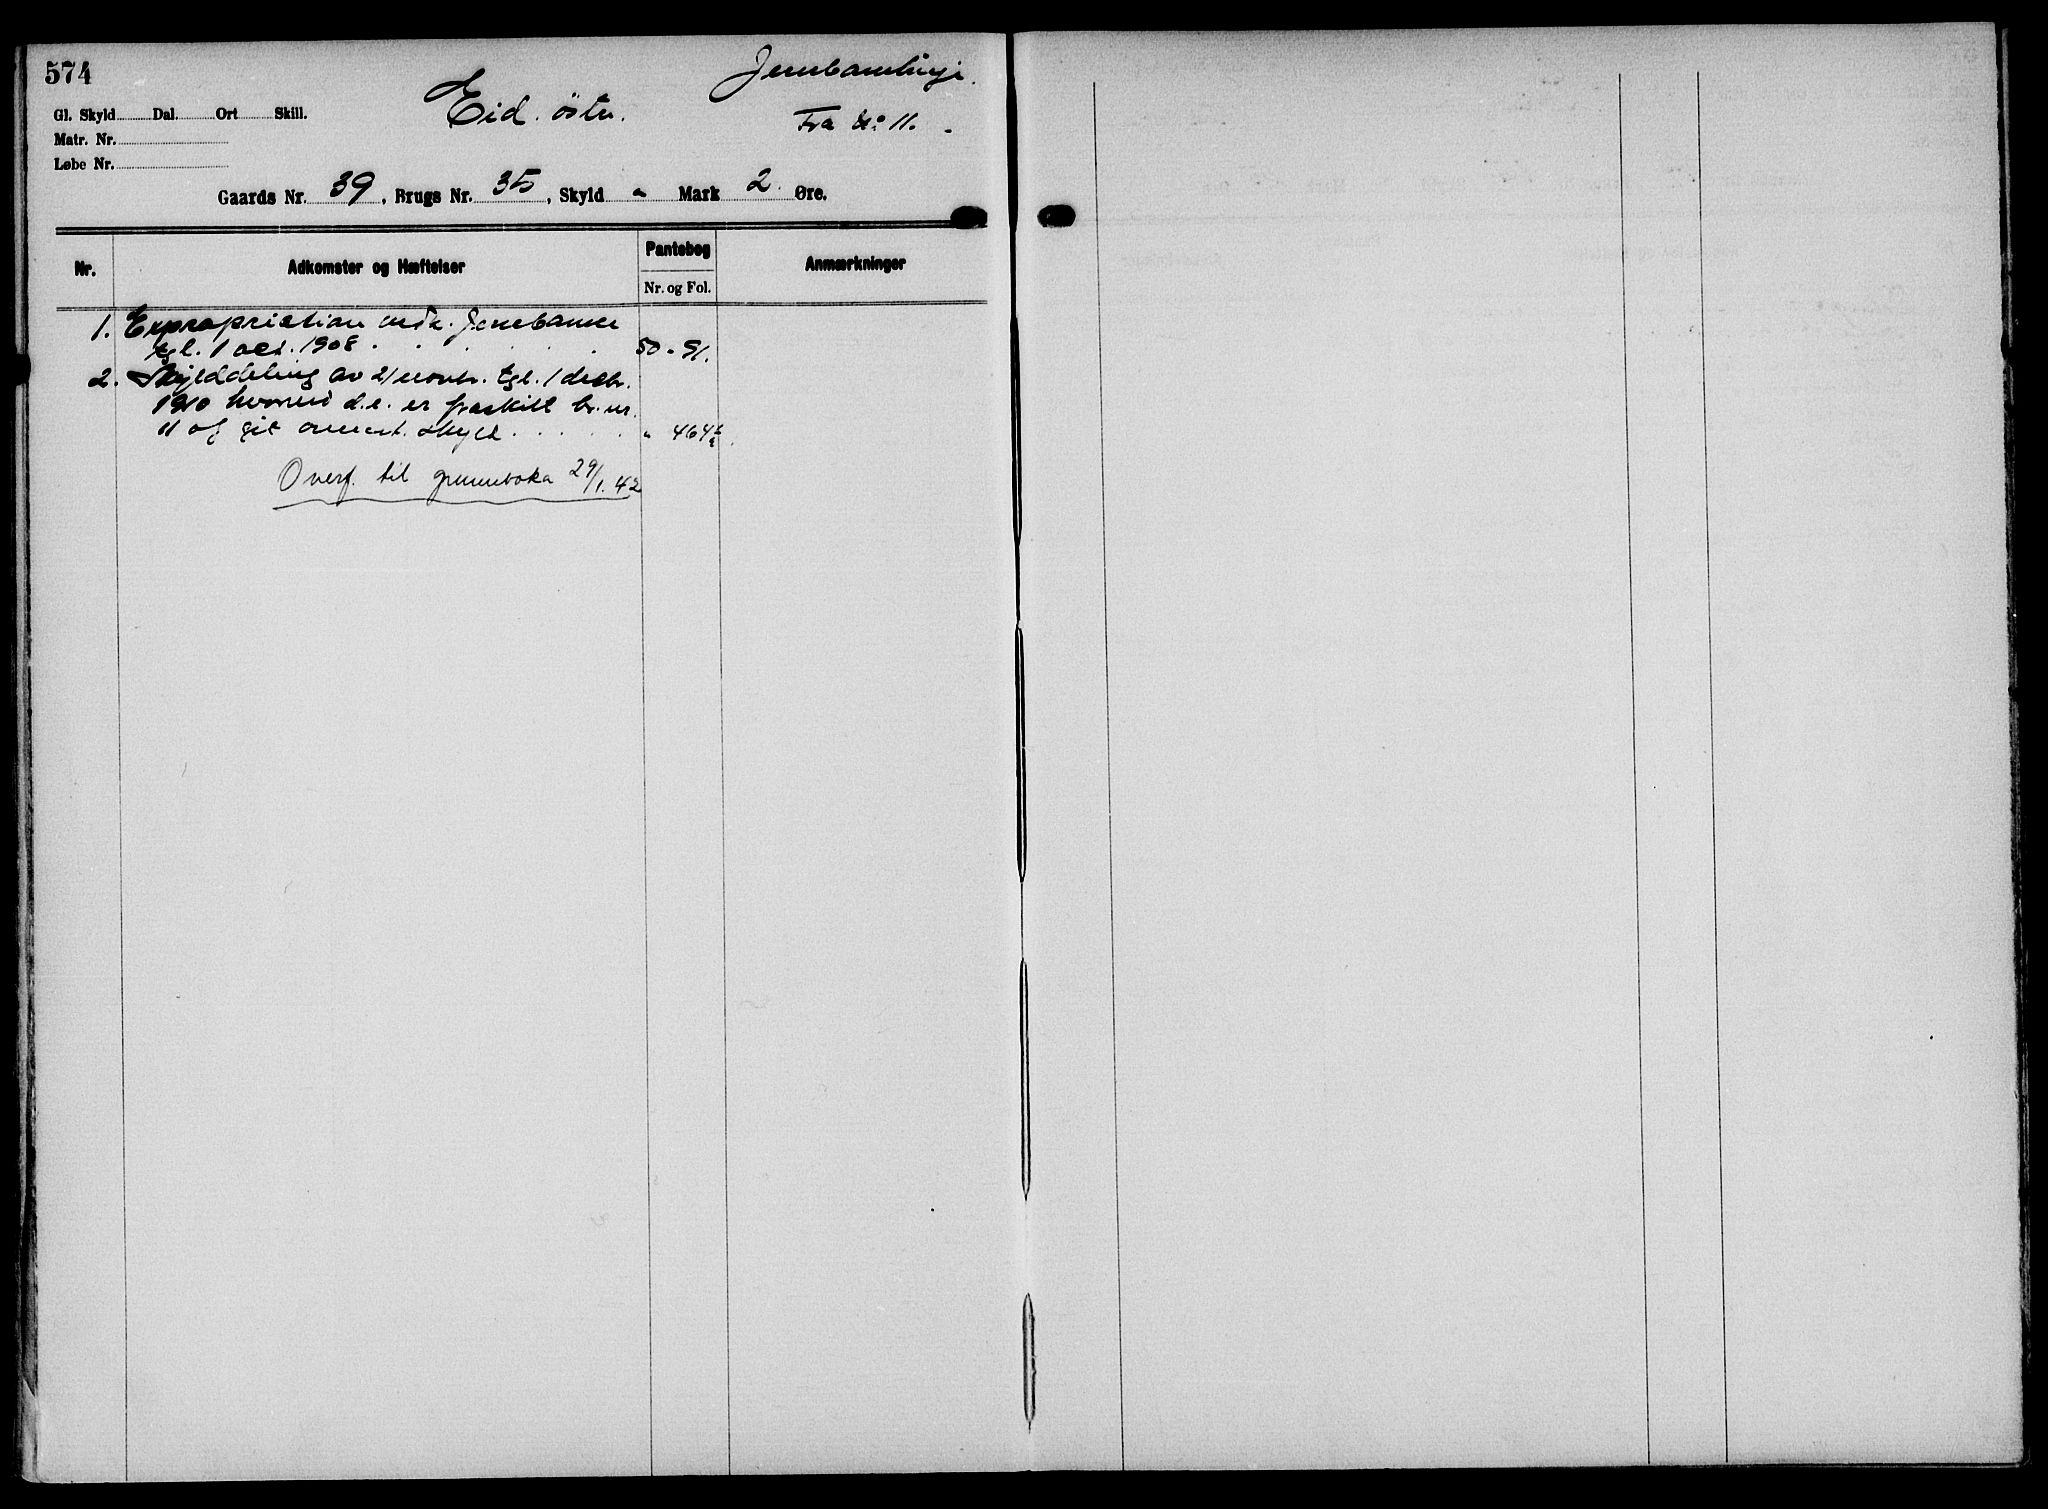 574
Jernbanelinje.
Eid. östre.
Fra No 11.
Gl. Skyld Dal. Ort Skill.
Matr. Nr.
Løbe Nr.
Gaards Nr. 39, Brugs Nr. 35, Skyld " Mark 2 Øre.
Nr. Adkomster og Hæftelser Pantebog Anmærkninger
Nr. og Fol.
1. Expropriation vedk. Jernbanen
tgl. 1 oct. 1908 . . . . . 50 - 91.
2. Skylddeling av 21 novbr. tgl. 1 decbr.
1910 hvorved d.e. er fraskilt br. nr.
11 og git anført skyld . . . . . " 464
Overf. til grunnboka 29/1. 42